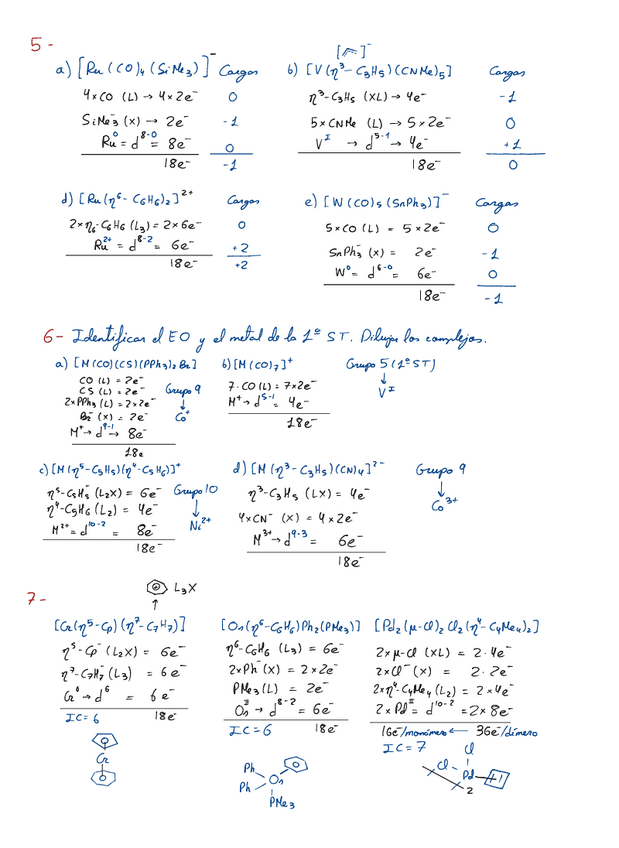 5-
a) [Ru(CO)4(SiMe3)]⁻ Cargas
4×CO (L) → 4×2e⁻ 0
SiMe3⁻ (X) → 2e⁻ -1
Ru⁰ = d⁸⁻⁰ = 8e⁻ 0
18e⁻ -1
[ ]⁻
b) [V(η³-C3H5)(CNMe)5] Cargas
η³-C3H5 (XL) → 4e⁻ -1
5×CNMe (L) → 5×2e⁻ 0
Vᴵ → d⁵⁻¹ → 4e⁻ +1
18e⁻ 0
d) [Ru(η⁶-C6H6)2]²⁺ Cargas
2×η6-C6H6 (L3) = 2×6e⁻ 0
Ru²⁺ = d⁸⁻² = 6e⁻ +2
18e⁻ +2
e) [W(CO)5(SnPh3)]⁻ Cargas
5×CO (L) = 5×2e⁻ 0
SnPh3⁻ (X) = 2e⁻ -1
W⁰ = d⁶⁻⁰ = 6e⁻ 0
18e⁻ -1
6- Identificar el EO y el metal de la 1ª ST. Dibuja los complejos.
a) [M(CO)(CS)(PPh3)2Br]
CO (L) = 2e⁻
CS (L) = 2e⁻
2×PPh3 (L) = 2×2e⁻
Br⁻ (X) = 2e⁻
M⁺ → d⁹⁻¹ → 8e⁻
18e
Grupo 9
↓
Co⁺
b) [M(CO)7]⁺
7·CO (L) = 7×2e⁻
M⁺ → d⁵⁻¹ = 4e⁻
18e⁻
Grupo 5 (1ª ST)
↓
Vᴵ
c) [M(η⁵-C5H5)(η⁴-C5H6)]⁺
η⁵-C5H5⁻ (L2X) = 6e⁻
η⁴-C5H6 (L2) = 4e⁻
M²⁺ = d¹⁰⁻² = 8e⁻
18e⁻
Grupo 10
↓
Ni²⁺
d) [M(η³-C3H5)(CN)4]²⁻
η³-C3H5 (LX) = 4e⁻
4×CN⁻ (X) = 4×2e⁻
M³⁺ → d⁹⁻³ = 6e⁻
18e⁻
Grupo 9
↓
Co³⁺
7-
L3X
↑
[Cr(η⁵-Cp)(η⁷-C7H7)]
η⁵-Cp⁻ (L2X) = 6e⁻
η⁷-C7H7⁺ (L3) = 6e⁻
Cr⁰ → d⁶ = 6e⁻
IC=6 18e⁻
Cr
[Os(η⁶-C6H6)Ph2(PMe3)]
η⁶-C6H6 (L3) = 6e⁻
2×Ph⁻ (X) = 2×2e⁻
PMe3 (L) = 2e⁻
Osᴵᴵ → d⁸⁻² = 6e⁻
IC=6 18e⁻
Ph
Ph
Os
PMe3
[Pd2(μ-Cl)2Cl2(η⁴-C4Me4)2]
2×μ-Cl (XL) = 2·4e⁻
2×Cl⁻ (X) = 2·2e⁻
2×η⁴-C4Me4 (L2) = 2×4e⁻
2×Pdᴵᴵ = d¹⁰⁻² = 2×8e⁻
16e⁻/monómero ← 36e⁻/dímero
IC=7
Cl
Cl
Pd
2